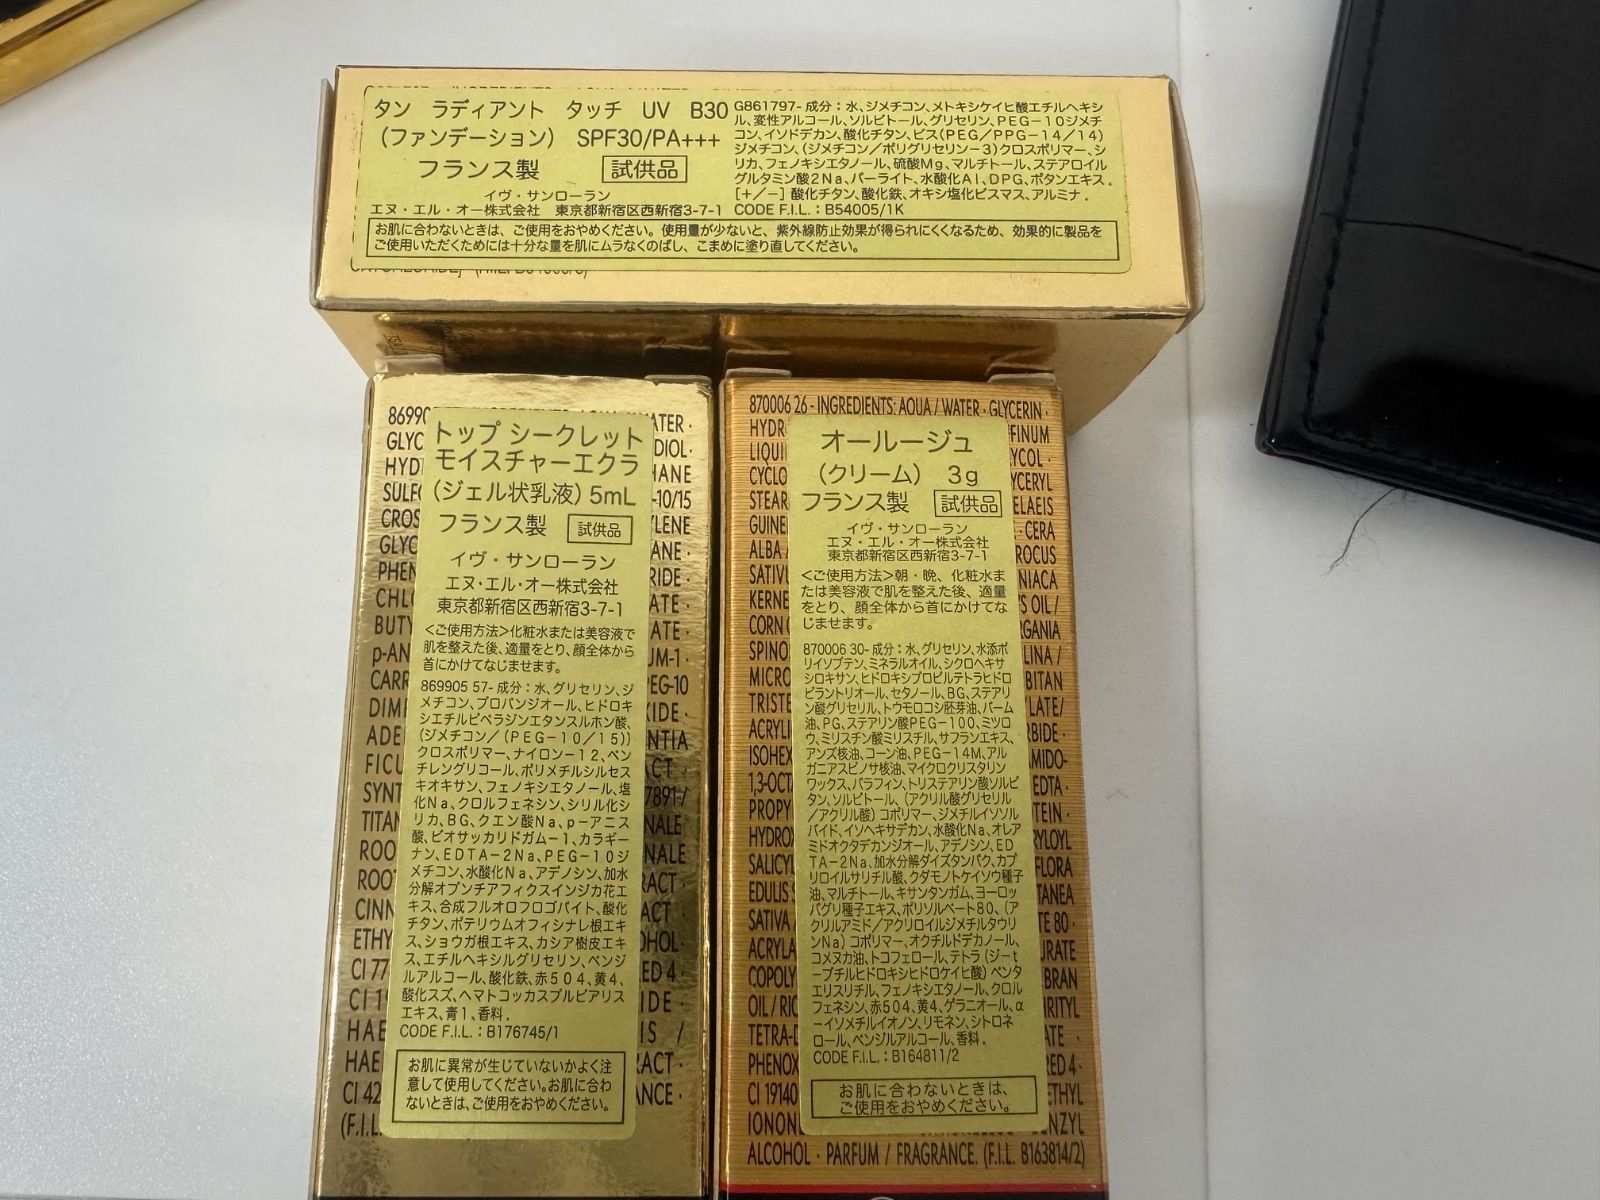 タン ラディアント タッチ UV B30
(ファンデーション) SPF30/PA+++
フランス製 試供品
イヴ・サンローラン
エヌ・エル・オー株式会社 東京都新宿区西新宿3-7-1
G861797- 成分:水、ジメチコン、メトキシケイヒ酸エチルヘキシ
ル、変性アルコール、ソルビトール、グリセリン、PEG-10ジメチ
コン、イソドデカン、酸化チタン、ビス(PEG/PPG-14/14)
ジメチコン、(ジメチコン/ポリグリセリン-3)クロスポリマー、シ
リカ、フェノキシエタノール、硫酸Mg、マルチトール、ステアロイル
グルタミン酸2Na、パーライト、水酸化Al、DPG、ボタンエキス.
[+/-] 酸化チタン、酸化鉄、オキシ塩化ビスマス、アルミナ.
CODE F.I.L. : B54005/1K
お肌に合わないときは、ご使用をおやめください。使用量が少ないと、紫外線防止効果が得られにくくなるため、効果的に製品を
ご使用いただくためには十分な量を肌にムラなくのばし、こまめに塗り直してください。
トップ シークレット
モイスチャーエクラ
(ジェル状乳液) 5mL
フランス製 試供品
イヴ・サンローラン
エヌ・エル・オー株式会社
東京都新宿区西新宿3-7-1
<ご使用方法>化粧水または美容液で
肌を整えた後、適量をとり、顔全体から
首にかけてなじませます。
869905 57- 成分:水、グリセリン、ジ
メチコン、プロパンジオール、ヒドロキ
シエチルピペラジンエタンスルホン酸、
(ジメチコン/(PEG-10/15))
クロスポリマー、ナイロン-12、ペン
チレングリコール、ポリメチルシルセス
キオキサン、フェノキシエタノール、塩
化Na、クロルフェネシン、シリル化シ
リカ、BG、クエン酸Na、p-アニス
酸、ビオサッカリドガム-1、カラギー
ナン、EDTA-2Na、PEG-10ジ
メチコン、水酸化Na、アデノシン、加水
分解オプンチアフィクスインジカ花エ
キス、合成フルオロフロゴパイト、酸化
チタン、ポテリウムオフィシナレ根エキ
ス、ショウガ根エキス、カシア樹皮エキ
ス、エチルヘキシルグリセリン、ベンジ
ルアルコール、酸化鉄、赤504、黄4、
酸化スズ、ヘマトコッカスプルビアリス
エキス、青1、香料.
CODE F.I.L. : B176745/1
お肌に異常が生じていないかよく注
意して使用してください。お肌に合わ
ないときは、ご使用をおやめください。
870006 26 - INGREDIENTS: AQUA / WATER · GLYCERIN ·
オールージュ
(クリーム) 3g
フランス製 試供品
イヴ・サンローラン
エヌ・エル・オー株式会社
東京都新宿区西新宿3-7-1
<ご使用方法>朝・晩、化粧水ま
たは美容液で肌を整えた後、適量
をとり、顔全体から首にかけてな
じませます。
870006 30- 成分:水、グリセリン、水添ポ
リイソブテン、ミネラルオイル、シクロヘキサ
シロキサン、ヒドロキシプロピルテトラヒドロ
ピラントリオール、セタノール、BG、ステアリ
ン酸グリセリル、トウモロコシ胚芽油、パーム
油、PG、ステアリン酸PEG-100、ミツロ
ウ、ミリスチン酸ミリスチル、サフランエキス、
アンズ核油、コーン油、PEG-14M、アル
ガニアスピノサ核油、マイクロクリスタリン
ワックス、パラフィン、トリステアリン酸ソルビ
タン、ソルビトール、(アクリル酸グリセリル
/アクリル酸)コポリマー、ジメチルイソソル
バイド、イソヘキサデカン、水酸化Na、オレア
ミドオクタデカンジオール、アデノシン、ED
TA-2Na、加水分解ダイズタンパク、カプ
リロイルサリチル酸、クダモノトケイソウ種子
油、マルチトール、キサンタンガム、ヨーロッ
パグリ種子エキス、ポリソルベート80、(ア
クリルアミド/アクリロイルジメチルタウリ
ンNa)コポリマー、オクチルドデカノール、
コメヌカ油、トコフェロール、テトラ(ジ-t
-ブチルヒドロキシヒドロケイヒ酸)ペンタ
エリスリチル、フェノキシエタノール、クロル
フェネシン、赤504、黄4、ゲラニオール、α
-イソメチルイオノン、リモネン、シトロネ
ロール、ベンジルアルコール、香料.
CODE F.I.L. : B164811/2
お肌に合わないときは、
ご使用をおやめください。
ALCOHOL · PARFUM / FRAGRANCE. (F.I.L. B163814/2)